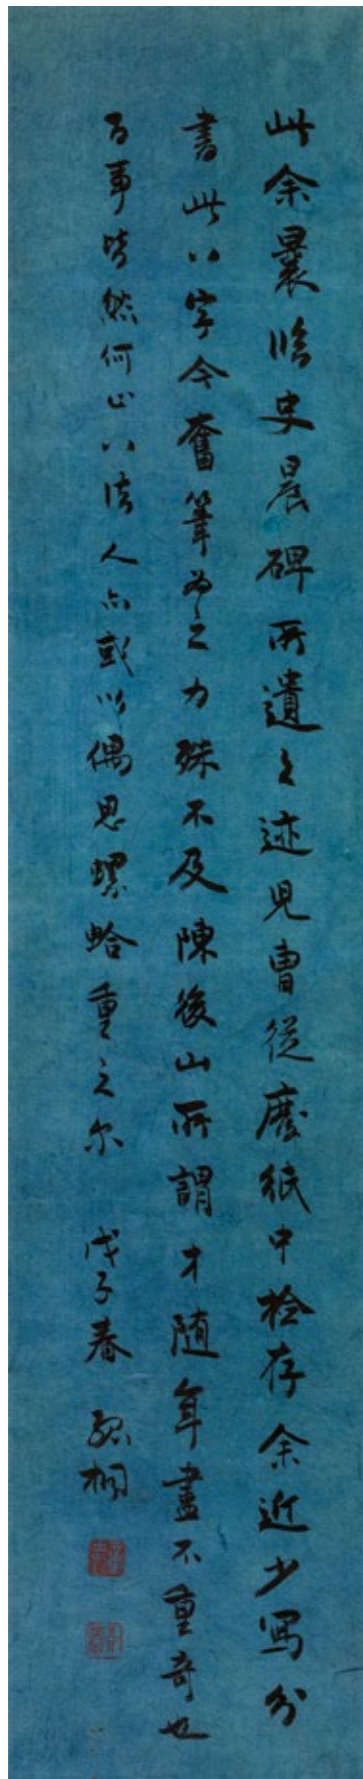 此余曩临史晨碑所遺之迹見曹從廢紙中檢存余近少写分
書此八字今奮筆為之力殊不及陳後山所謂才随年盡不重奇也
百事皆然何止八法人亦或以偶思螺蛤重之尔 戊子春 孤桐